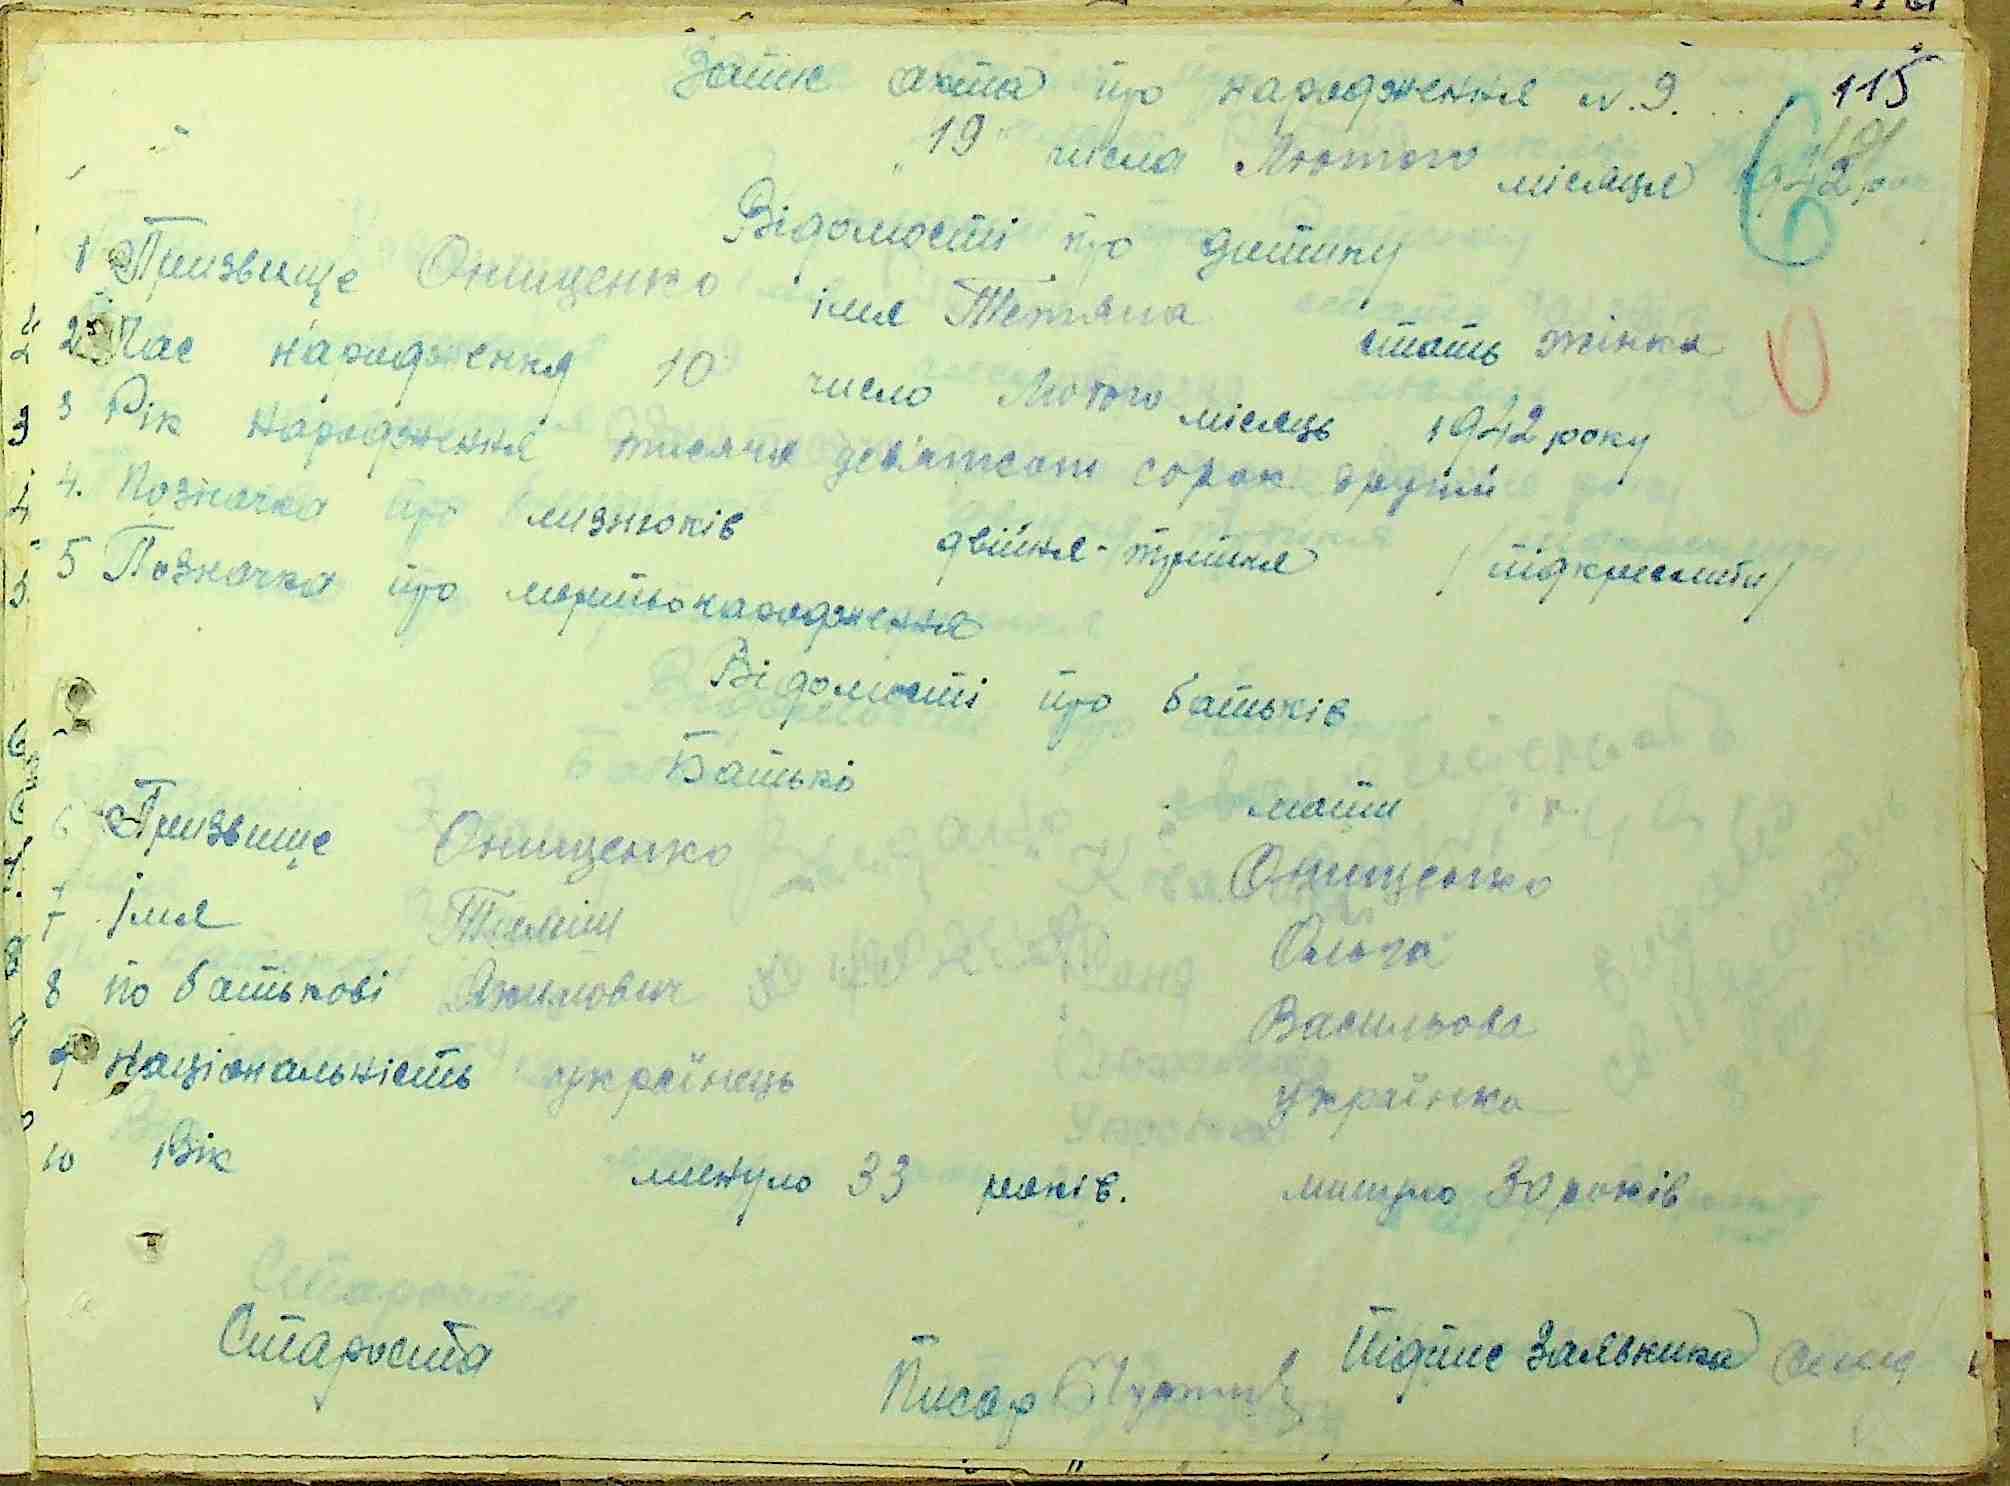 115
Запис акта про народження N.9.
"19 числа Лютого місяця 1942 рок
Відомості про дитину
1 Призвище Онищенко імя Тетяна стать жінка
2. Час народження 10 число Лютого місяць 1942 року
3 Рік народження тисяча девятсот сорок другий
4. Позначка про близнюків двійня-трійня /підкреслити/
5 Позначка про мертвонародження
Відомості про батьків
Батько мати
6 Призвище Онищенко Онищенко
7 імя Тиміш Ольга
8 по батькові Якимович Васильова
9 Національність українець українка
10 Вік минуло 33 років. минуло 30 років
Староста
Писар Підпис Заявника